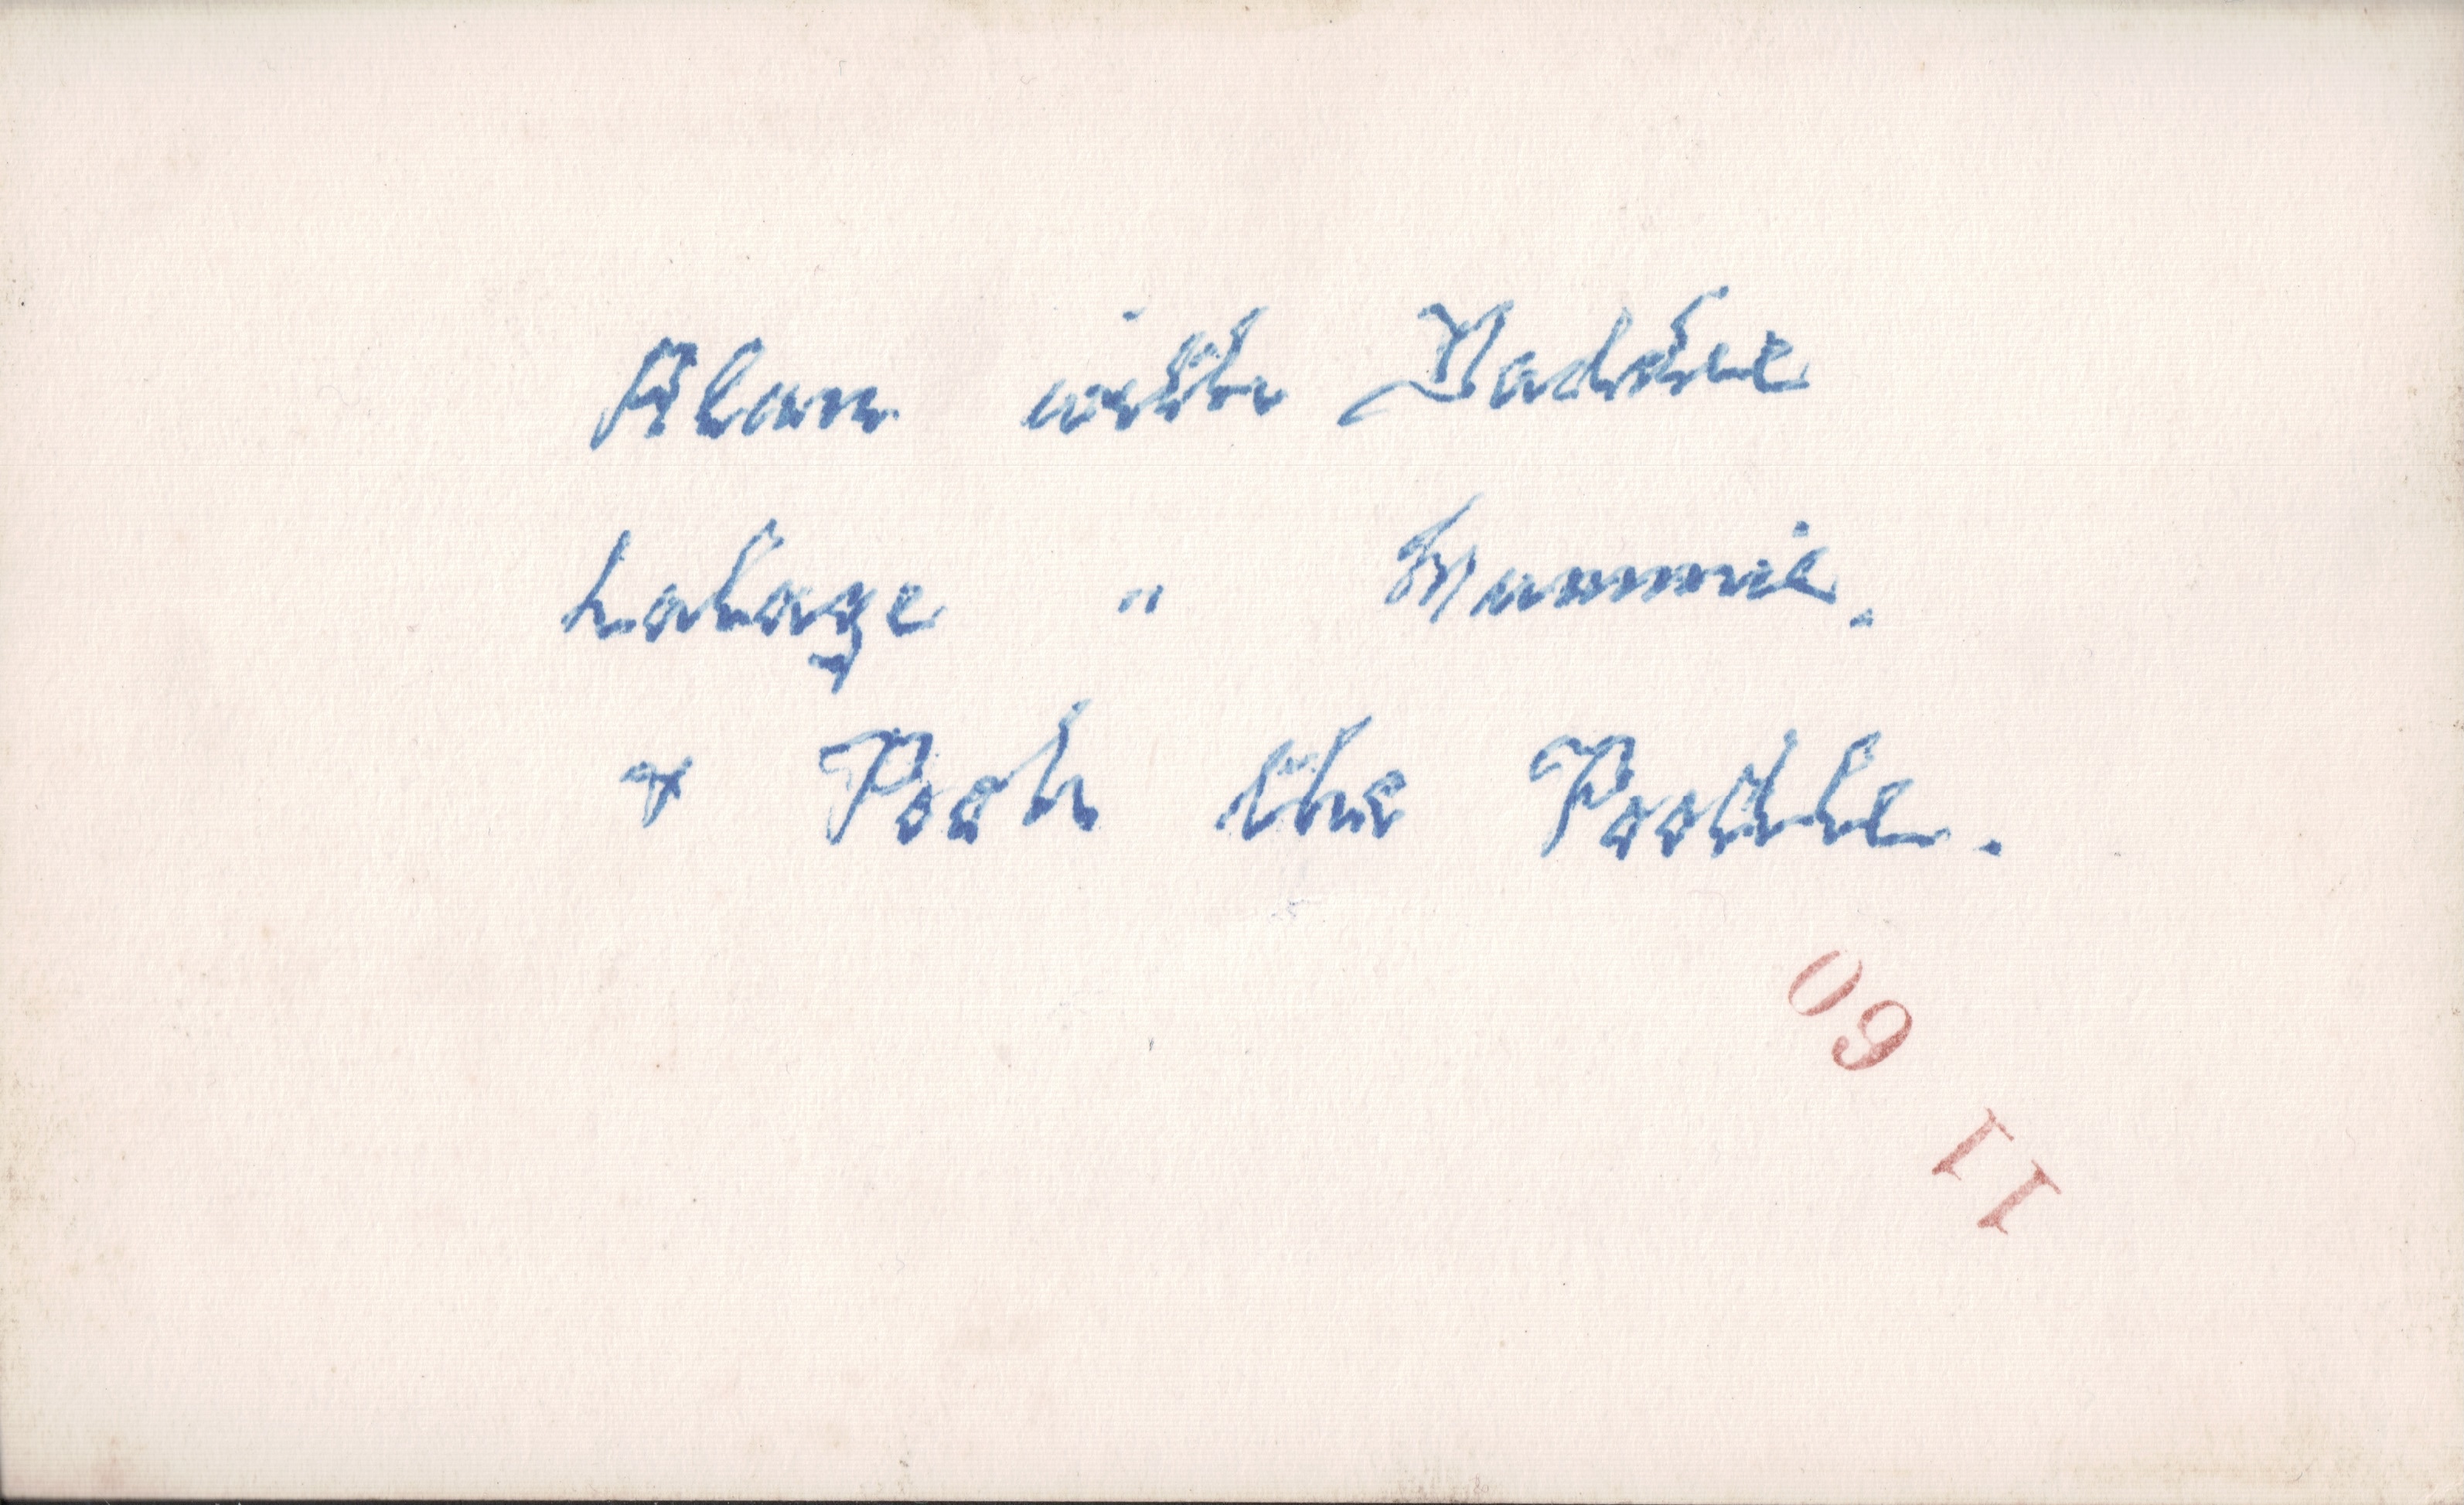 Alan with Daddie
Lalage " Mummie.
+ Pooh the Poodle.
11 60